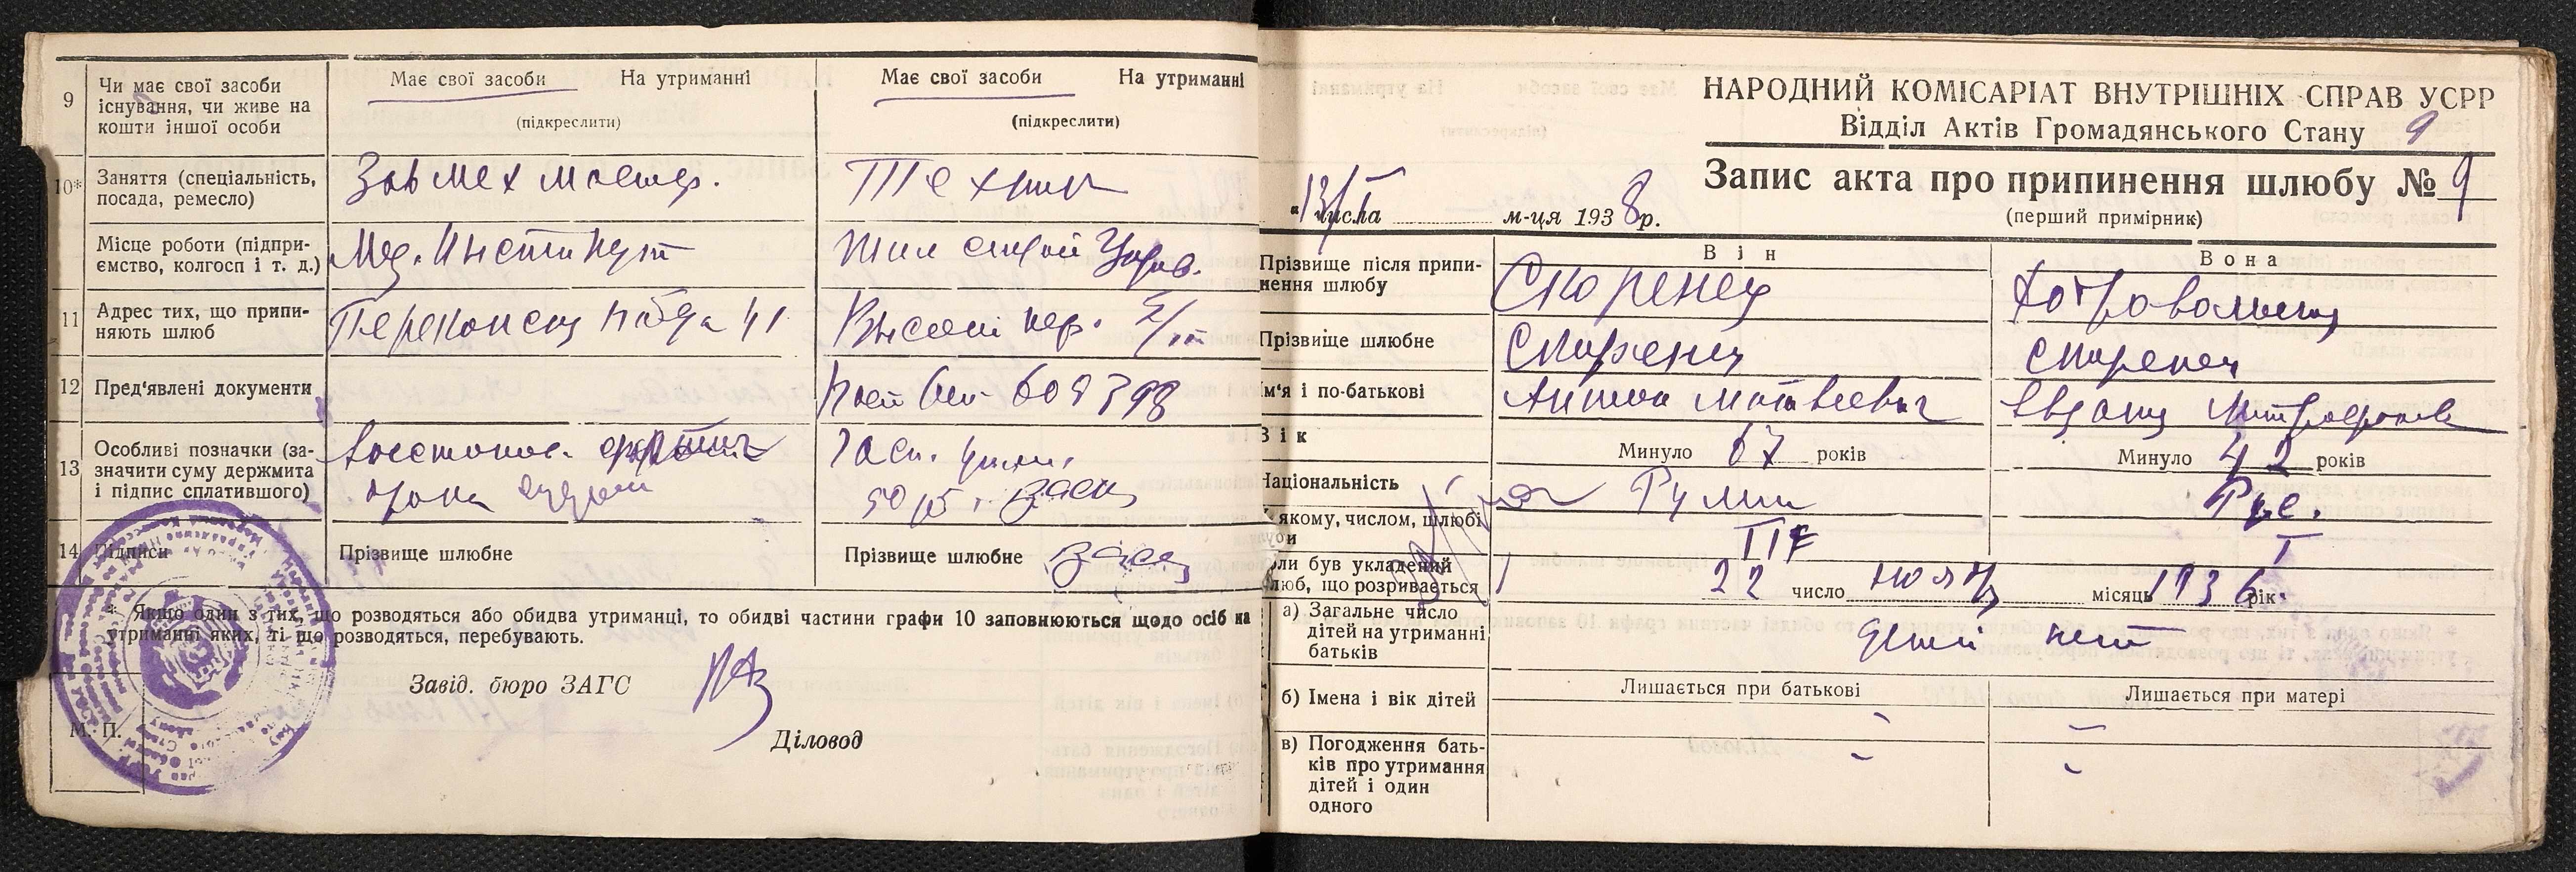 9
Чи має свої засоби
існування, чи живе на
кошти іншої особи
Має свої засоби На утриманні
(підкреслити)
Має свої засоби На утриманні
(підкреслити)
10*
Заняття (спеціальність,
посада, ремесло)
Зав мех
Техник
Місце роботи (підпри-
ємство, колгосп і т. д.)
Мед. Институт
Жил
11
Адрес тих, що припи-
няють шлюб
41
12
Пред'явлені документи
13
Особливі позначки (за-
значити суму держмита
і підпис сплатившого)
50
14
Підписи
Прізвище шлюбне
Прізвище шлюбне
* Якщо один з тих, що розводяться або обидва утриманці, то обидві частини графи 10 заповнюються щодо осіб на
утриманні яких, ті що розводяться, перебувають.
Завід. бюро ЗАГС
Діловод
М. П.
НАРОДНИЙ КОМІСАРІАТ ВНУТРІШНІХ СПРАВ УСРР
Відділ Актів Громадянського Стану 9
Запис акта про припинення шлюбу № 9
(перший примірник)
числа м-ця 1938 р.
Він
Вона
Прізвище після припи-
нення шлюбу
Скоренец
Прізвище шлюбне
Скоренец
Скоренец
м'я і по-батькові
Антон Матвеевич
Митрофанов
Вік
Минуло 67 років
Минуло 42 років
Національність
Рус.
якому, числом, шлюбі
III
I
ли був укладений
люб, що розривається
22 число нояб місяць 1936 рік.
а) Загальне число
дітей на утриманні
батьків
детей нет
б) Імена і вік дітей
Лишається при батькові
Лишається при матері
в) Погодження бать-
ків про утримання
дітей і один
одного